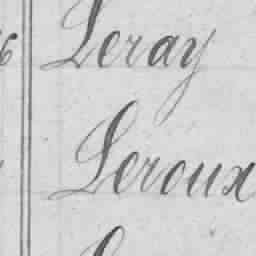 Leray
Leroux